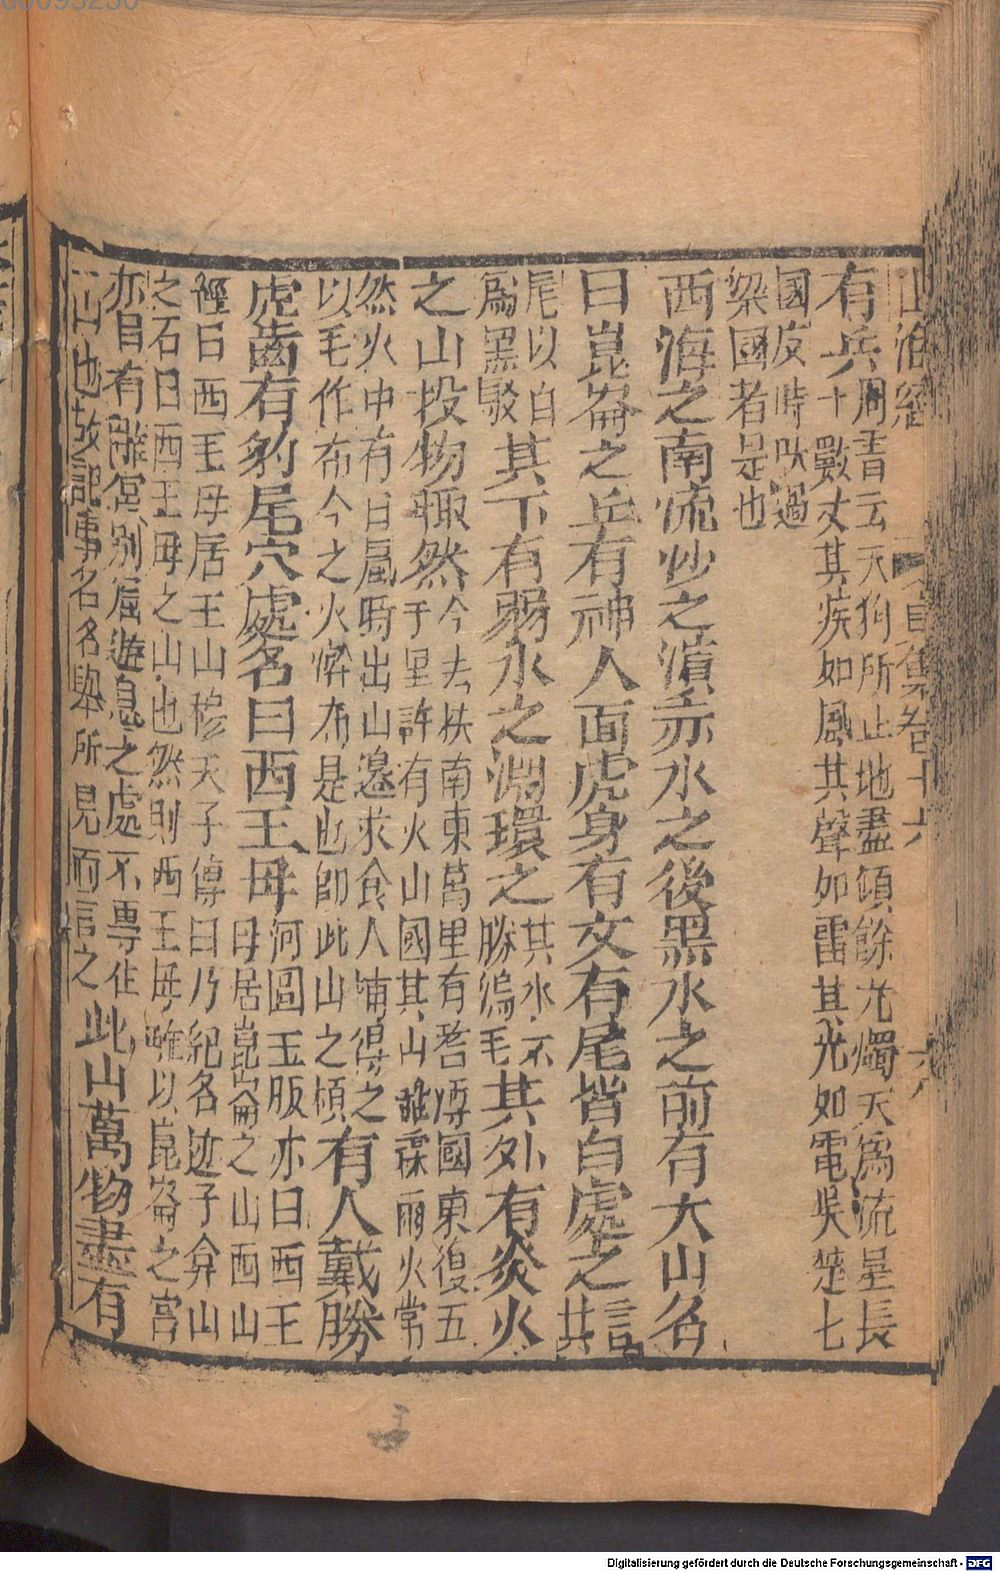 山海經 卷十六 六
有兵周書云天狗所止地盡傾餘光燭天爲流星長
十數丈其疾如風其聲如雷其光如電吳楚七
國反時吠過
梁國者是也
西海之南流沙之濵赤水之後黑水之前有大山名
曰崑崙之丘有神人面虎身有文有尾皆白處之言其
尾以白
爲黑駮其下有弱水之淵環之其水不
勝鴻毛其外有炎火
之山投物輙然今去扶南東萬里有耆薄國東復五
千里許有火山國其山雖霖雨火常
然火中有白鼠時出山邉求食人捕得之
以毛作布今之火澣布是也卽此山之類有人戴勝
虎齒有豹尾穴處名曰西王母河圖玉版亦曰西王
母居崑崙之山西山
經曰西王母居玉山穆天子傳曰乃紀名迹于弇山
之石曰西王母之山也然則西王母雖以崑崙之宮
亦自有離宮别窟遊息之處不專住
一山也故記事者各舉所見而言之此山萬物盡有
00095250
Digitalisierung gefördert durch die Deutsche Forschungsgemeinschaft - DFG